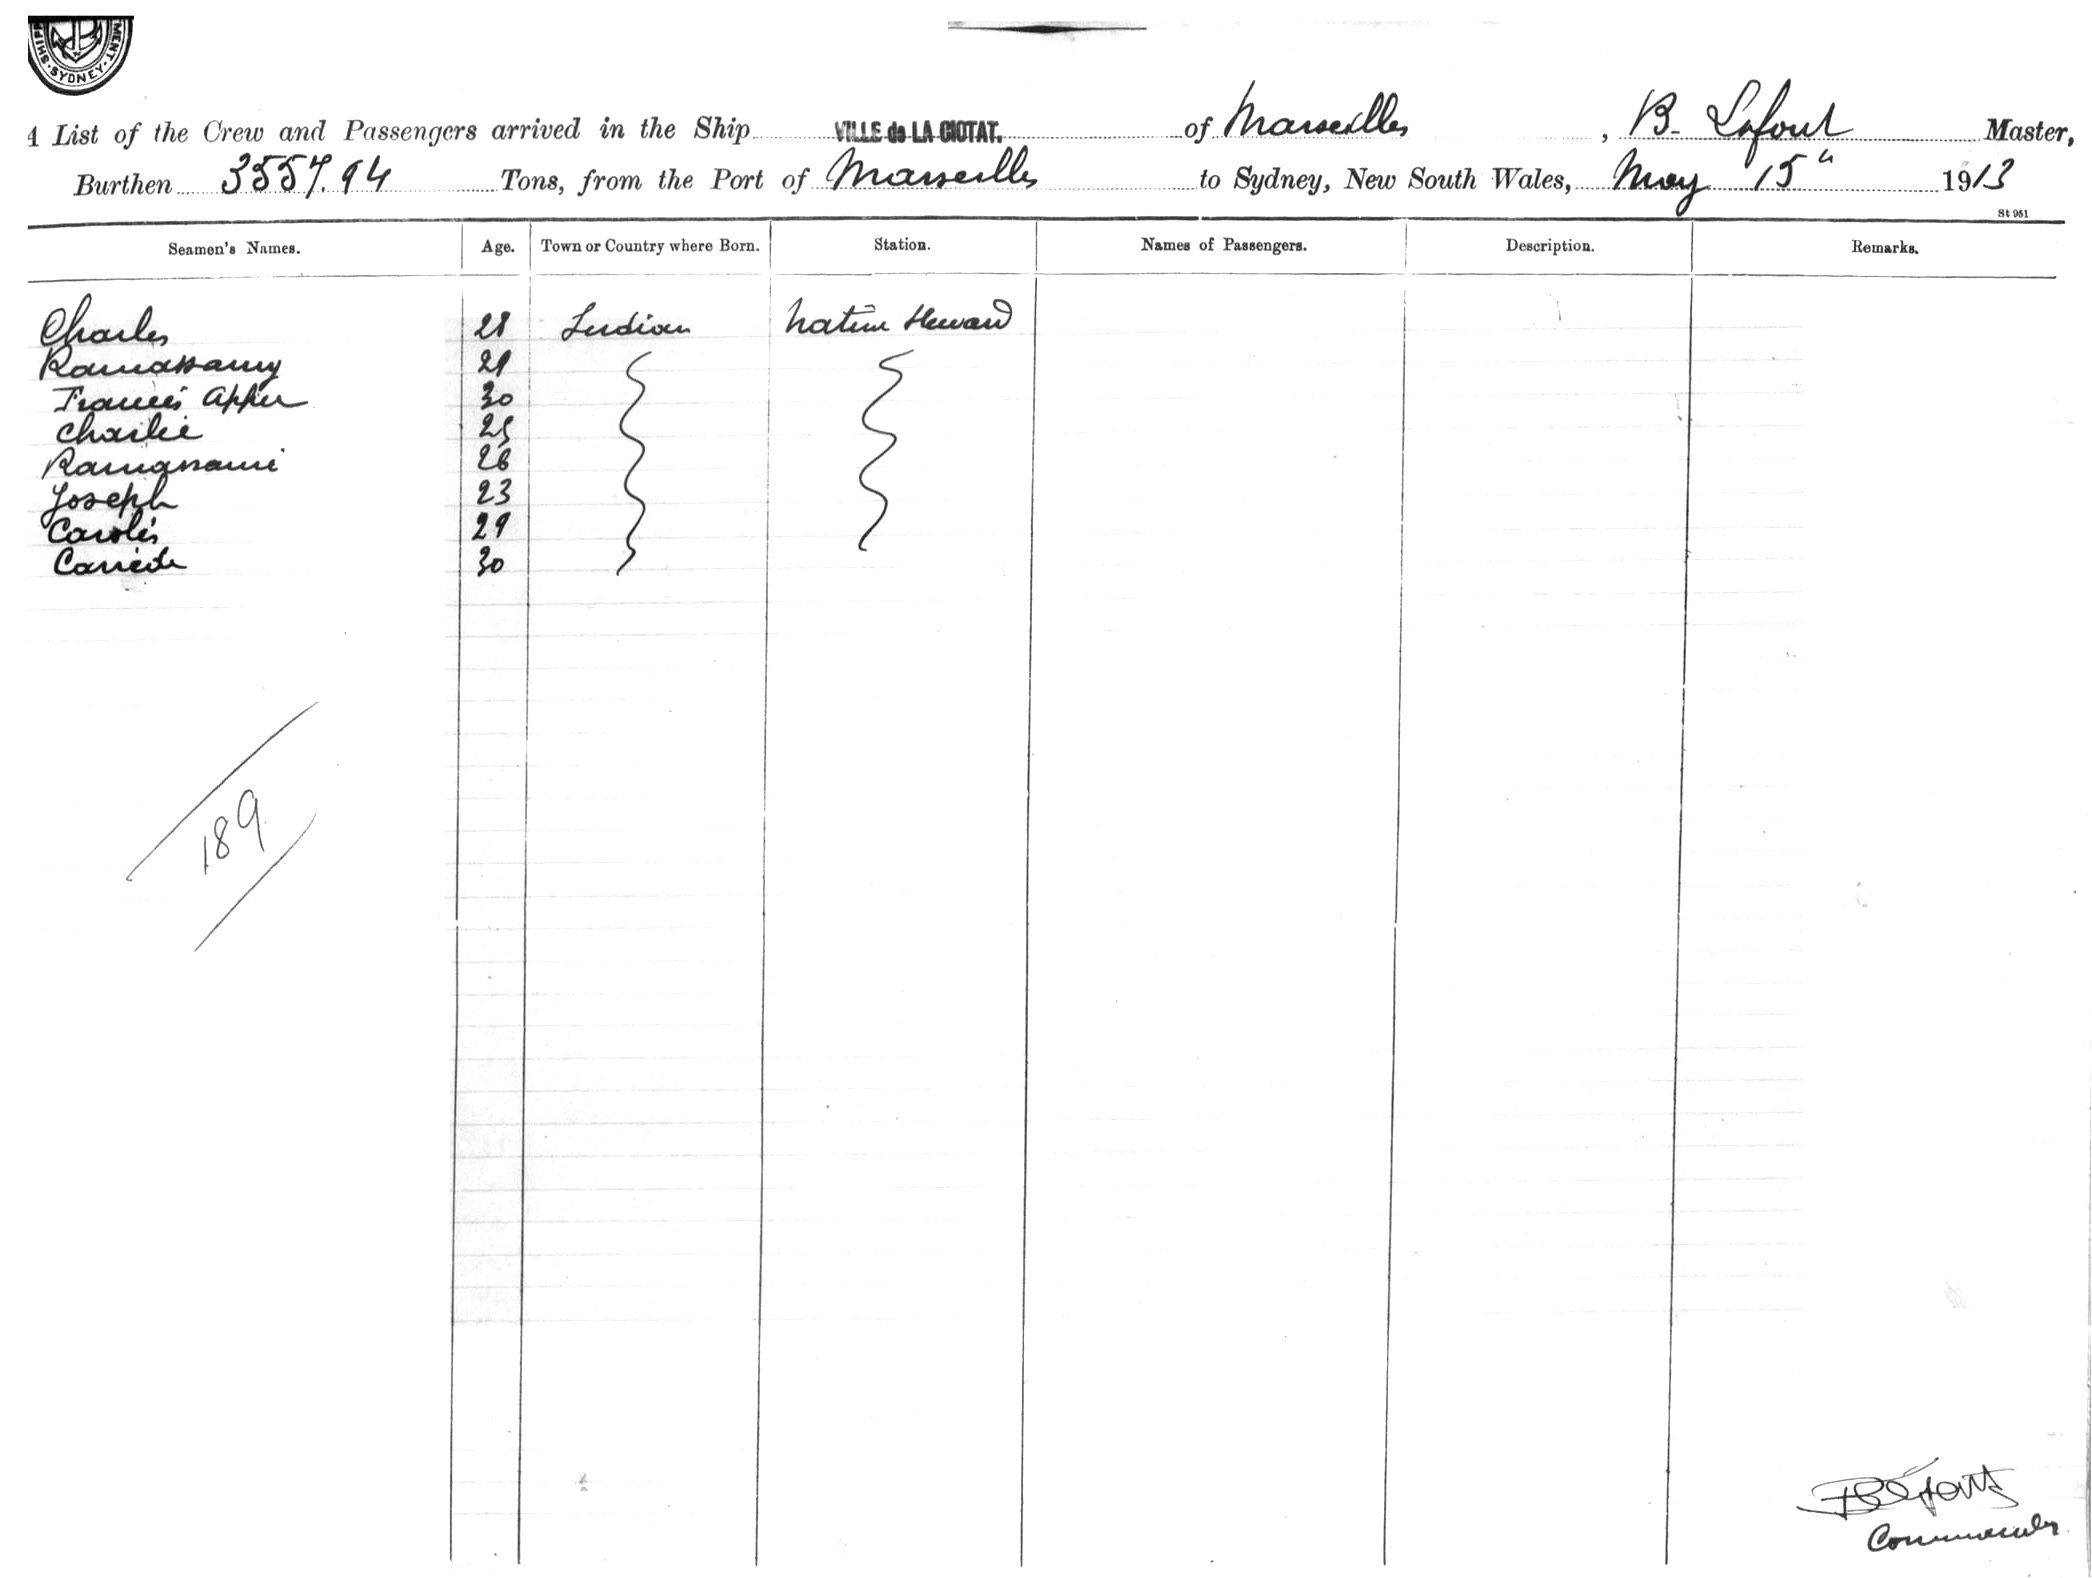 MENT. SYDNEY. SHIPP
A List of the Crew and Passengers arrived in the Ship VILLE de LA CIOTAT. of Marseilles, B. Lafont Master,
Burthen 3557.94 Tons, from the Port of Marseilles to Sydney, New South Wales, May 15th 1913
St 951
Seamen's Names. Age. Town or Country where Born. Station. Names of Passengers. Description. Remarks.
Charles 28 Indian Native Steward
Ramassamy 29
Francis 30
Charlie 25
Ramassami 26
Joseph 23
Carolis 29
30
189
Commander